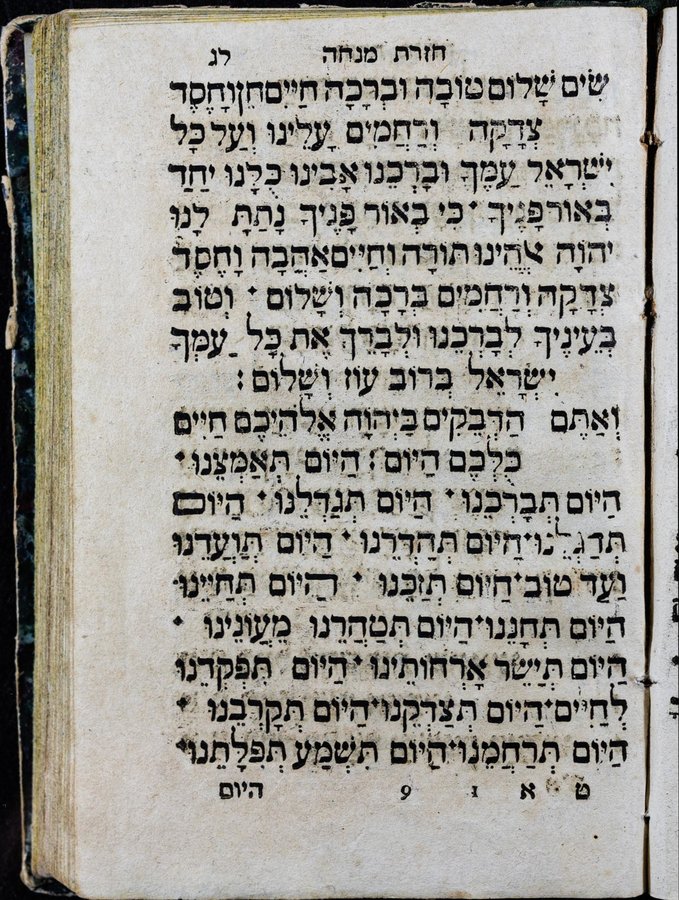 חזרת מנחה לג
שִׂים שָׁלוֹם טוֹבָה וּבְרָכָה חַיִּים חֵן וָחֶסֶד
צְדָקָה וְרַחֲמִים עָלֵינוּ וְעַל כָּל
יִשְׂרָאֵל עַמֶּךָ וּבָרְכֵנוּ אָבִינוּ כֻּלָּנוּ יַחַד
בְּאוֹר פָּנֶיךָ · כִּי בְאוֹר פָּנֶיךָ נָתַתָּ לָנוּ
יְהוָֹה אֱלֹהֵינוּ תּוֹרָה וְחַיִּים אַהֲבָה וָחֶסֶד
צְדָקָה וְרַחֲמִים בְּרָכָה וְשָׁלוֹם · וְטוֹב
בְּעֵינֶיךָ לְבָרְכֵנוּ וּלְבָרֵךְ אֶת כָּל עַמְּךָ
יִשְׂרָאֵל בְּרוֹב עוֹז וְשָׁלוֹם :
וְאַתֶּם הַדְּבֵקִים בַּיְהוָֹה אֱלֹהֵיכֶם חַיִּים
כֻּלְּכֶם הַיּוֹם : הַיּוֹם תְּאַמְּצֵנוּ ·
הַיּוֹם תְּבָרְכֵנוּ · הַיּוֹם תְּגַדְּלֵנוּ · הַיּוֹם
תְּדַגְּלֵנוּ · הַיּוֹם תְּהַדְּרֵנוּ · הַיּוֹם תְּוַעֲדֵנוּ
וַעַד טוֹב · הַיּוֹם תְּזַכֵּנוּ · הַיּוֹם תְּחַיֵּינוּ ·
הַיּוֹם תְּחָנֵּנוּ · הַיּוֹם תְּטַהֲרֵנוּ מֵעֲוֹנֵינוּ ·
הַיּוֹם תְּיַשֵּׁר אָרְחוֹתֵינוּ · הַיּוֹם תִּפְקְדֵנוּ
לְחַיִּים · הַיּוֹם תְּצַדְּקֵנוּ · הַיּוֹם תְּקָרְבֵנוּ ·
הַיּוֹם תְּרַחֲמֵנוּ · הַיּוֹם תִּשְׁמַע תְּפִלָּתֵנוּ ·
ט א 1 9 היום